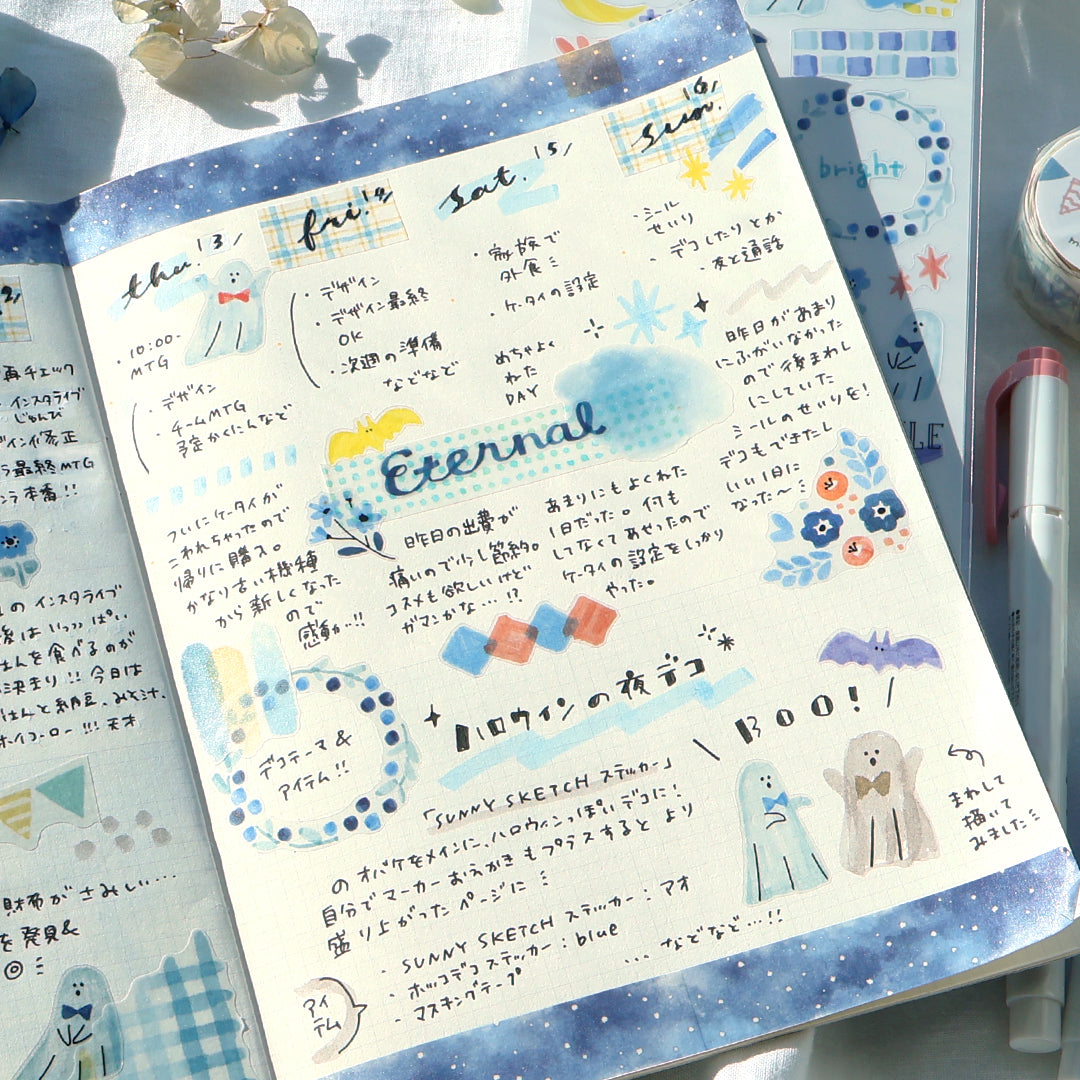 2/
再チェック
・インスタライブ
じゅんび
修正
最終MTG
本橋!!
の インスタライブ
後は いっっぱい
ごはんを食べるのが
決まり!! 今日は
ごはんと納豆、みそ汁、
ホイコーロー!!! 天才
財布がさみしい…
を発見&
thu. 13/
・10:00-
MTG
・デザイン
・チームMTG
予定かくにんなど
ついにケータイが
こわれちゃったので
帰りに購入。
かなり古い機種
から新しくなった
ので
感動!!
fri. 14/
・デザイン
・デザイン最終
OK
・次週の準備
などなど
Eternal
昨日の出費が
痛いので少し節約。
コスメも欲しいけど
ガマンかな…!?
sat. 15/
・家族で
外食
・ケータイの設定
めちゃよく
ねた
DAY
あまりにもよくねた
1日だった。何も
してなくてあせったので
ケータイの設定をしっかり
やった。
sun. 16/
・シール
せいり
・デコしたりとか
・友と通話
昨日があまり
にふがいなかった
ので後まわし
にしていた
シールのせいりを!
デコもできたし
いい1日に
なった〜
デコテーマ&
アイテム!!
ハロウィンの夜デコ
BOO!
「SUNNY SKETCH ステッカー」
のオバケをメインに、ハロウィンっぽいデコに!
自分でマーカーおえかきもプラスするとより
盛り上がったページに
まねして
描いて
みました
アイ
テム
・SUNNY SKETCH ステッカー:アオ
・ポッコデコステッカー:blue
・マスキングテープ
…などなど…!!
bright